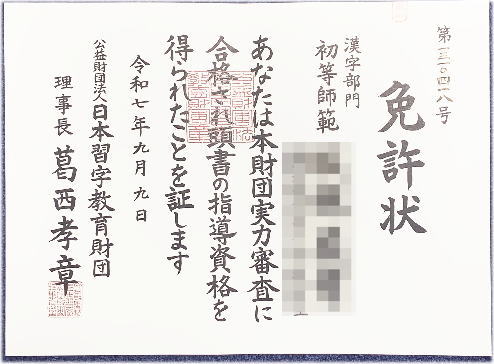 免許状
漢字部門
初等師範
あなたは本財団実力審査に
合格され頭書の指導資格を
得られたことを証します
令和七年九月九日
公益財団法人日本習字教育財団
理事長 葛西孝章